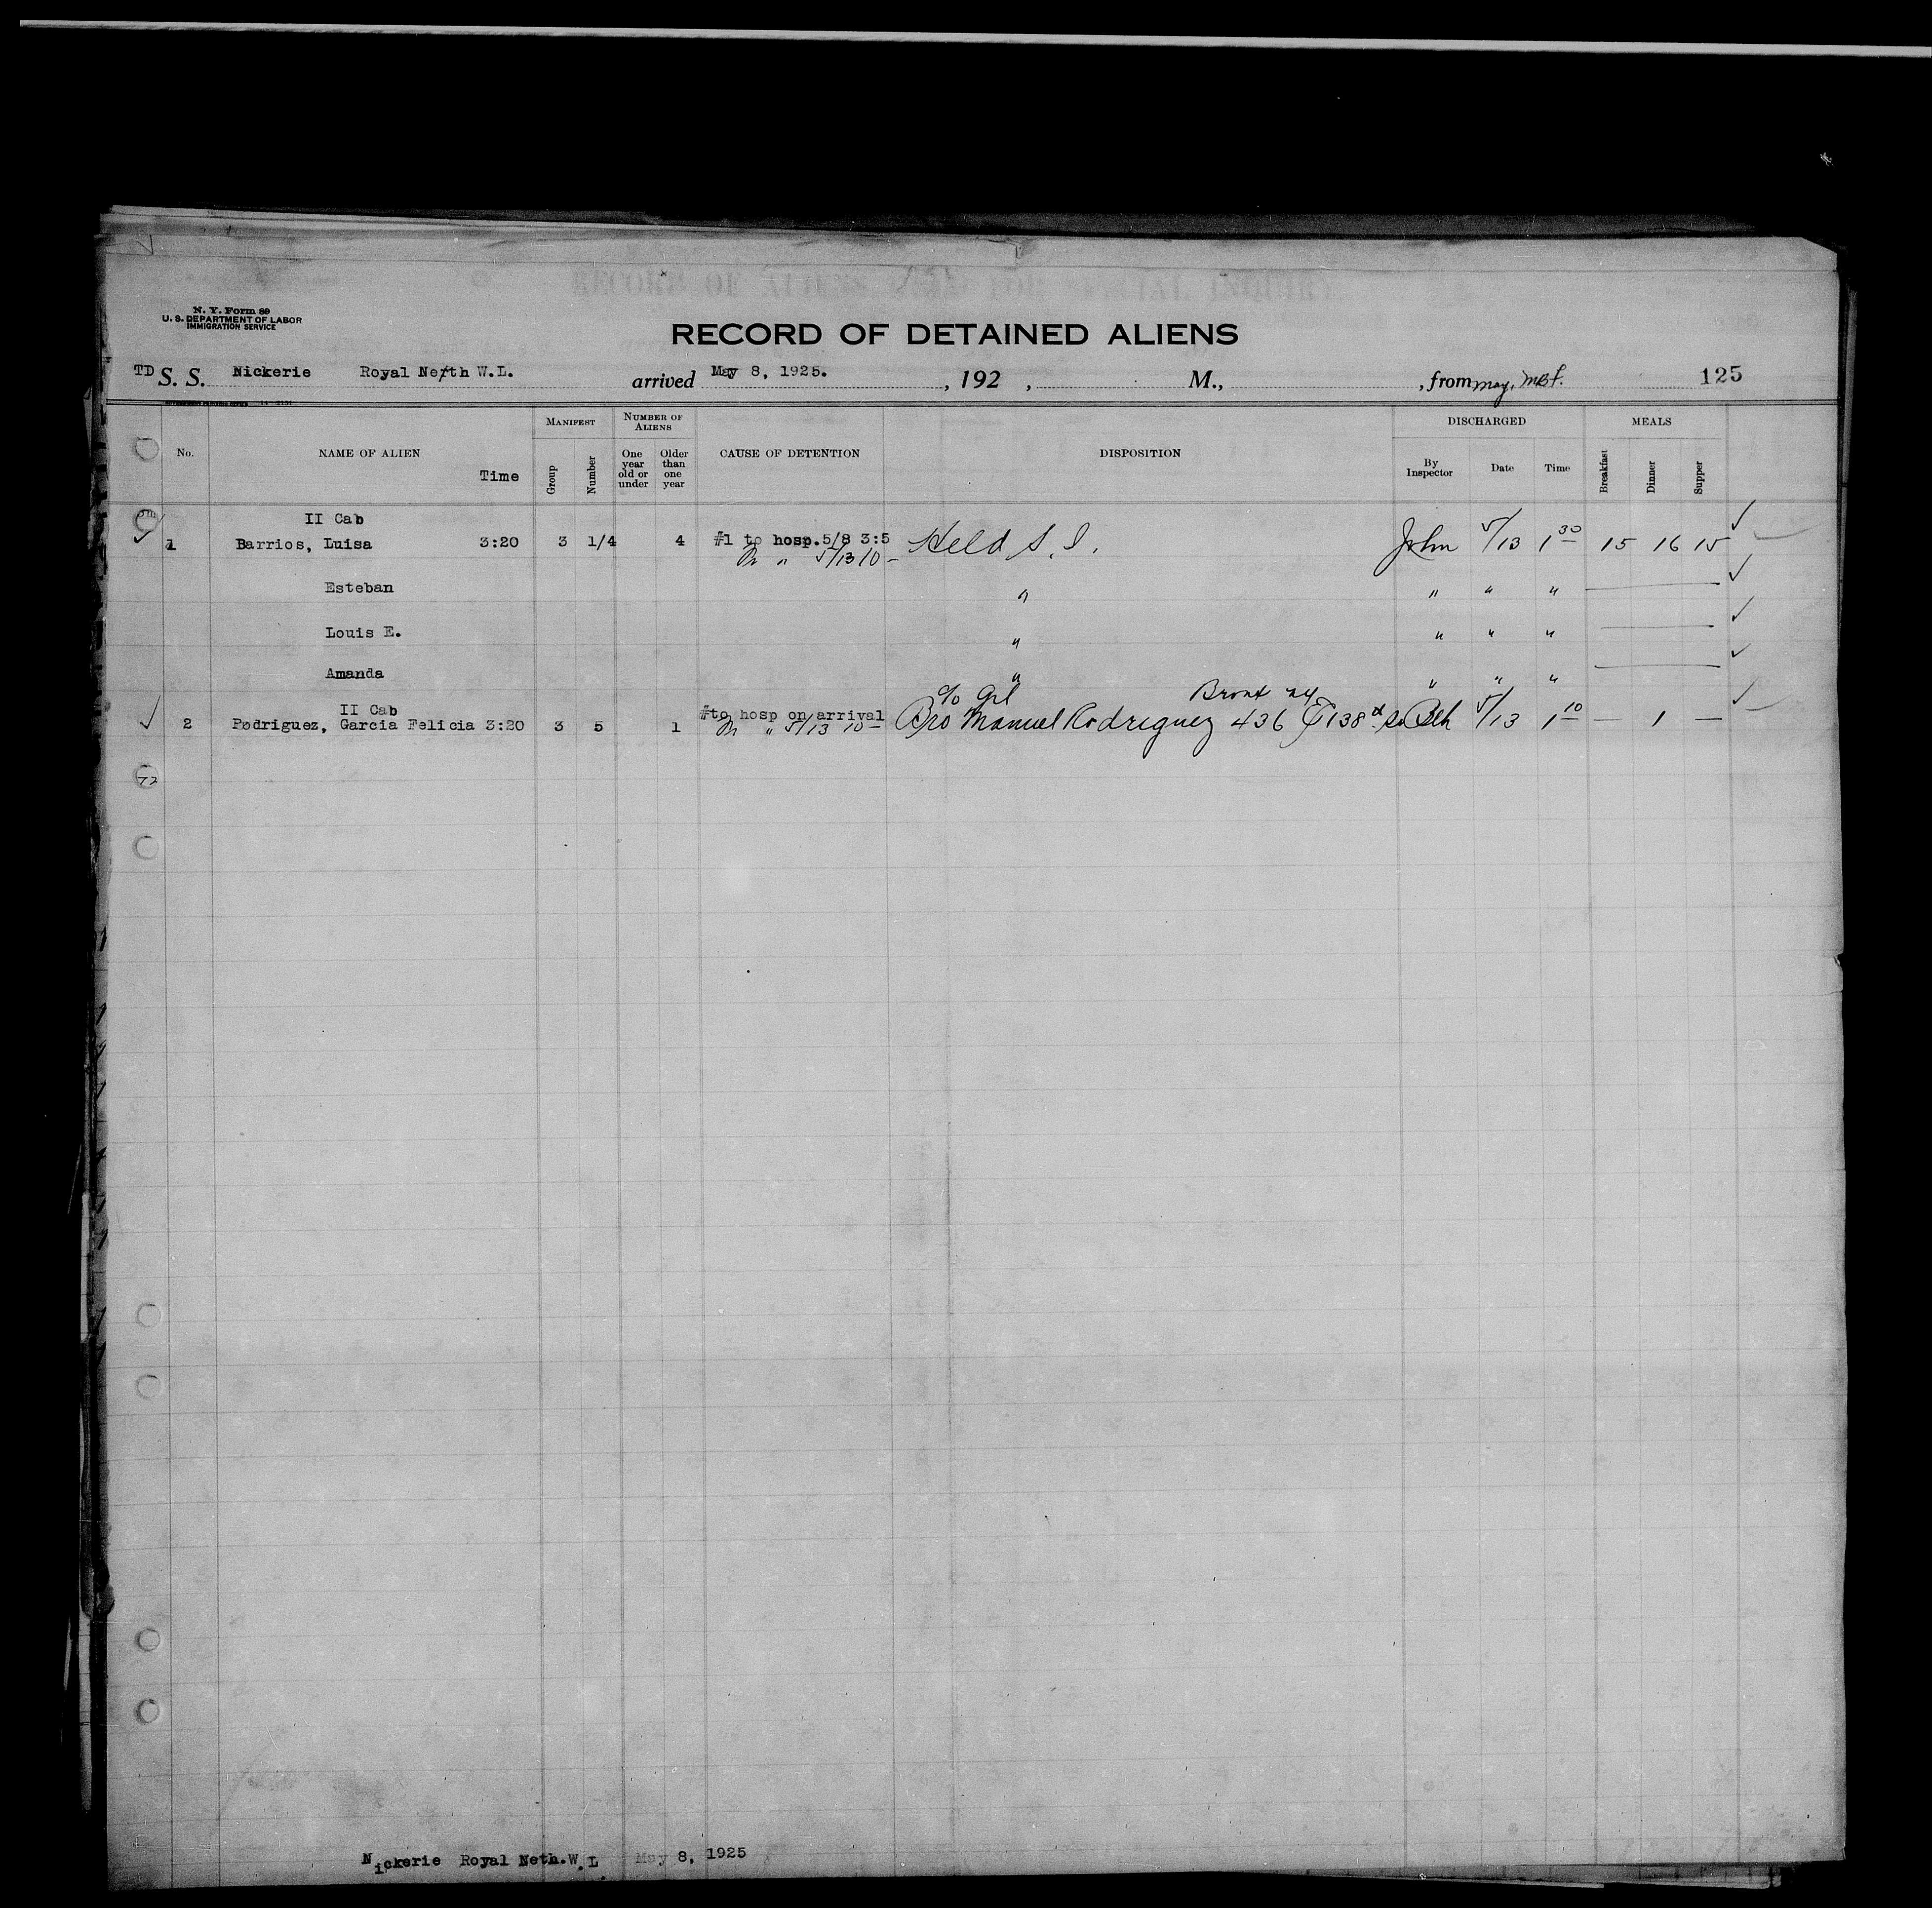 N. Y. Form 89
U. S. DEPARTMENT OF LABOR
IMMIGRATION SERVICE
RECORD OF DETAINED ALIENS
TD S. S. Nickerie Royal Neth W.L. arrived May 8, 1925. , 192 , M., , from May, 125
No. NAME OF ALIEN Time MANIFEST Group Number NUMBER OF ALIENS One year old or under Older than one year CAUSE OF DETENTION DISPOSITION DISCHARGED By Inspector Date Time MEALS Breakfast Dinner Supper
II Cab
1 Barrios, Luisa 3:20 3 1/4 4 #1 to hosp. 5/8 3:5 Held S. I. John 5/13 1 30 15 16 15
" 5/13 10 -
Esteban " " " "
Louis E. " " " "
Amanda " " " "
II Cab c/o Bronx NY
2 Rodriguez, Garcia Felicia 3:20 3 5 1 #to hosp on arrival Bro Manuel Rodriguez 436 E 138 St 5/13 1 10 — 1 —
" 5/13 10 —
Nickerie Royal Neth.W.L May 8, 1925